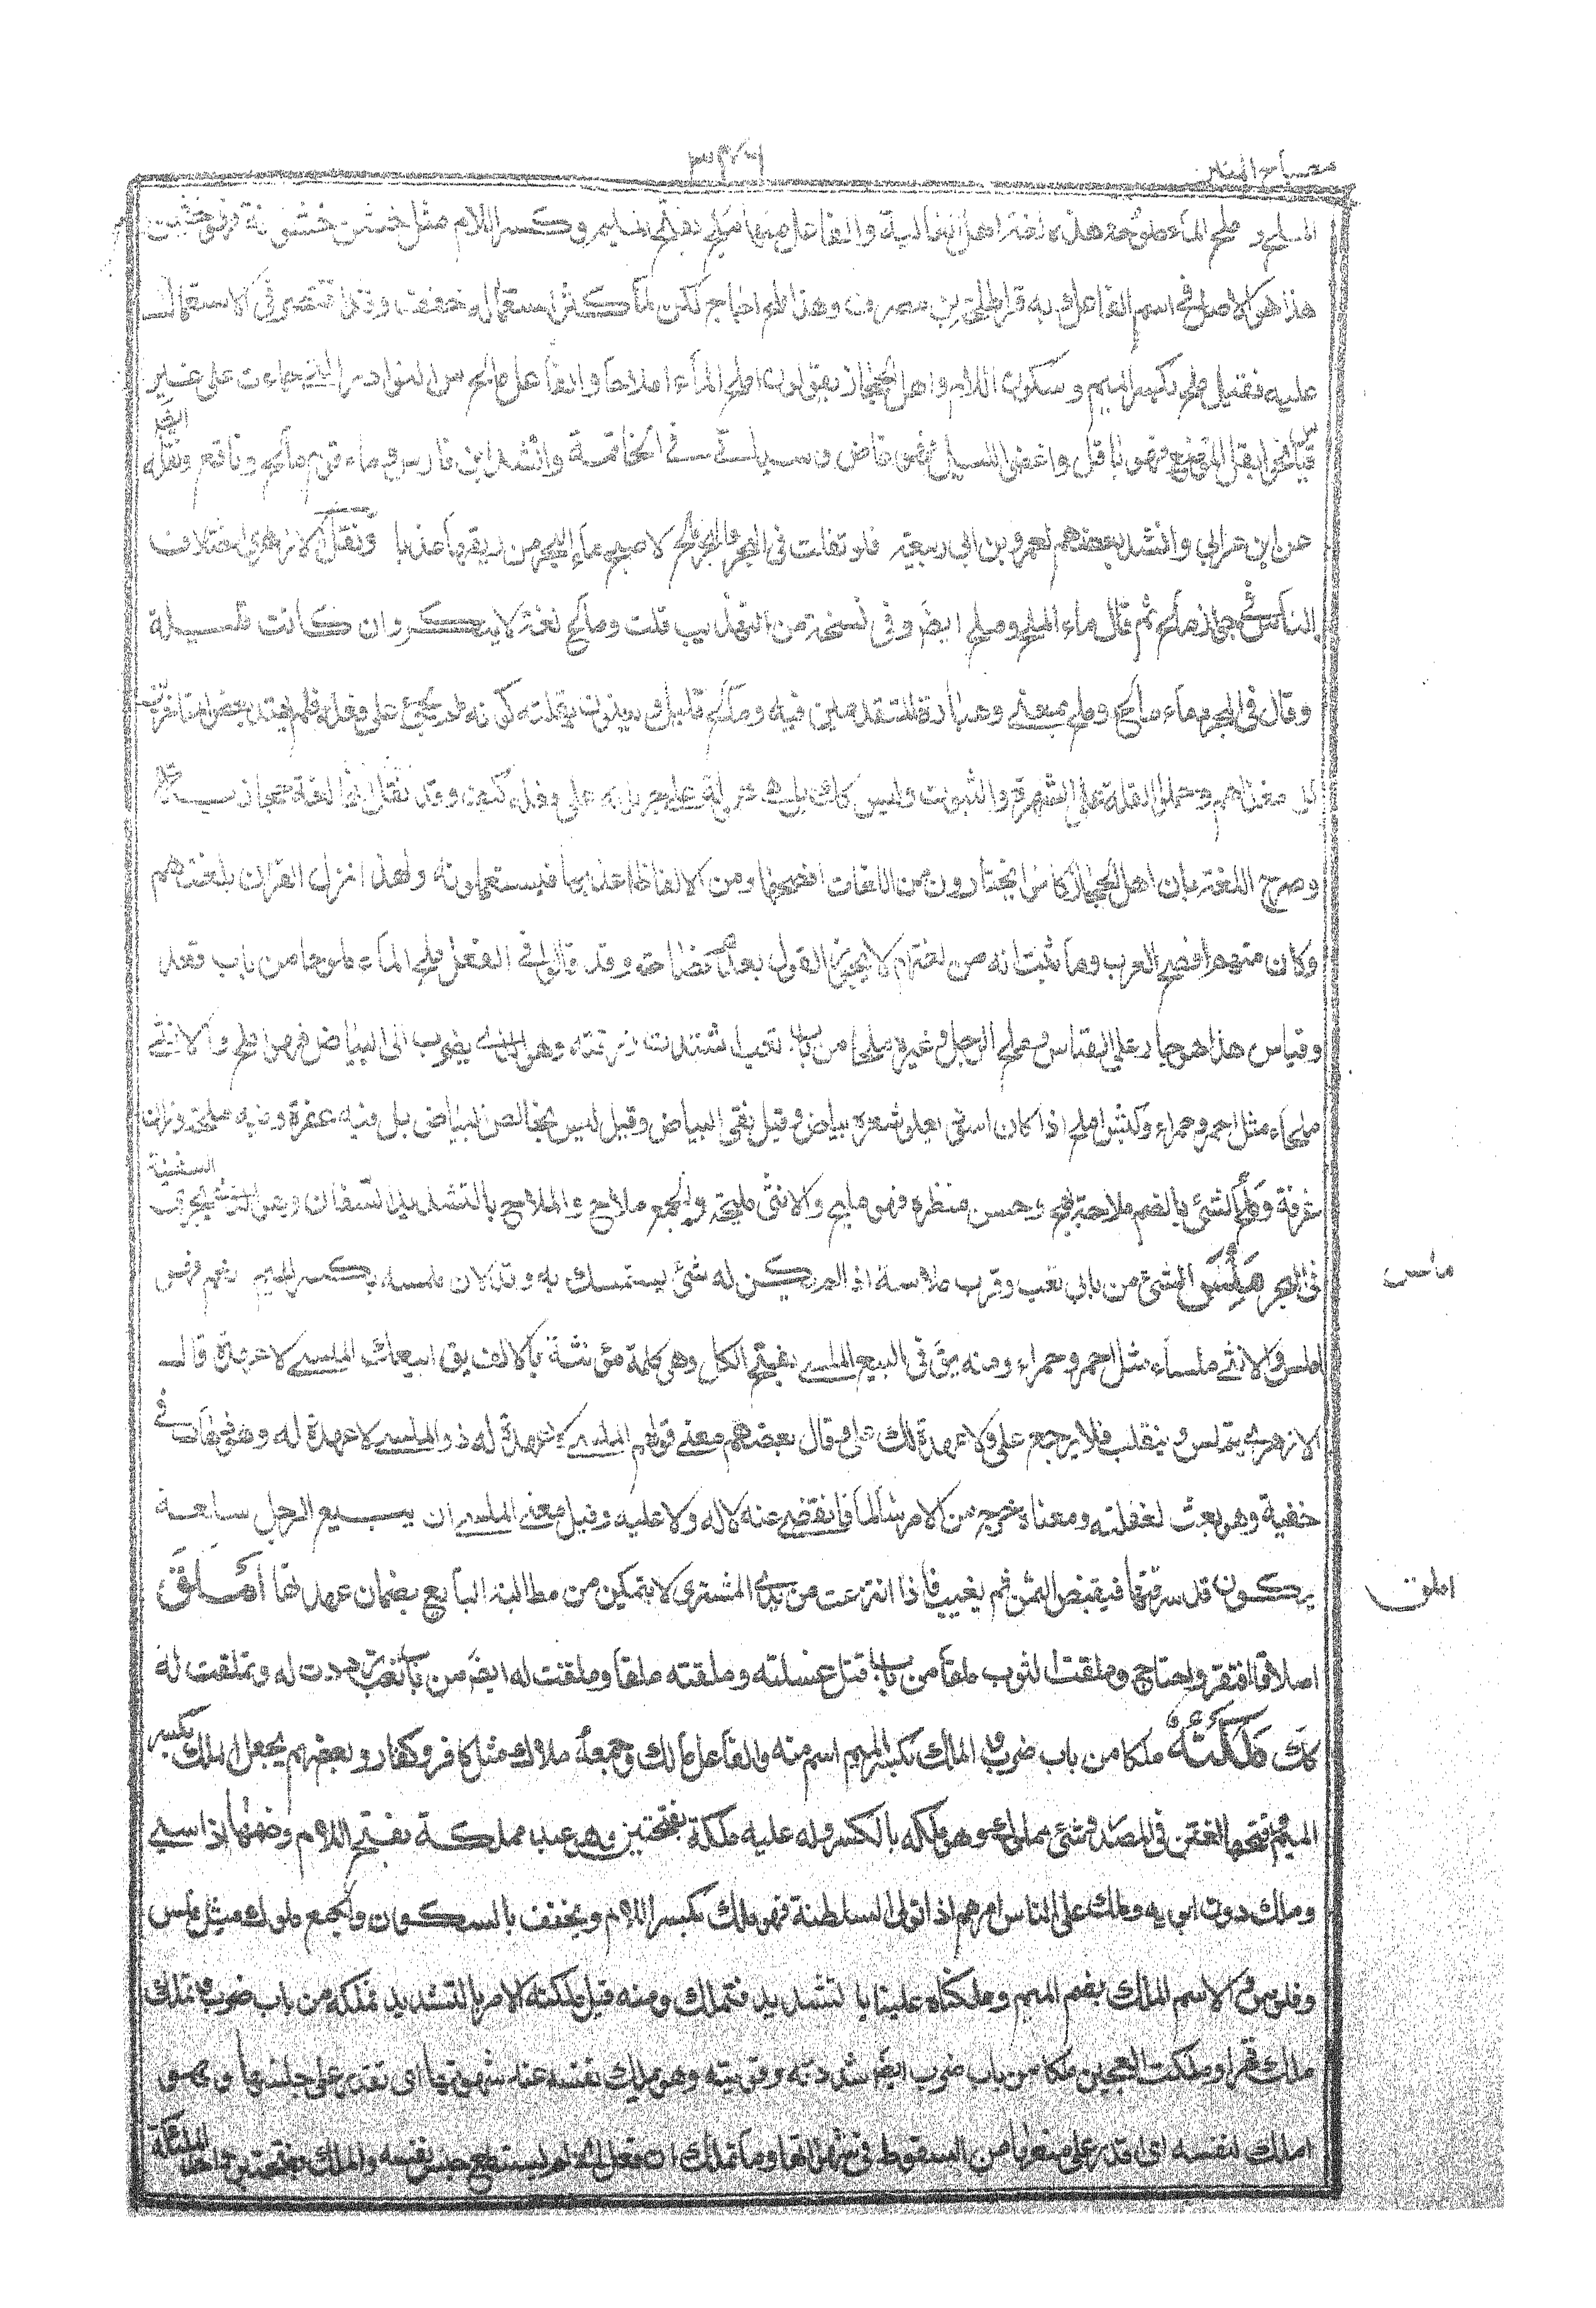 مصباح المنير
٣٧٦
وملح الماء ملوحة هذه لغة اهل العالية والفاعل منها ملح بفتح الميم وكسر اللام مثل خشن خشونة فهو خشن
هذا هو الاصل فى اسم الفاعل وبه قرا طلحة بن مصرف وهذا ملح اجاج لكن لما كثر استعمال خفف واقتصر فى الاستعمال
عليه فقيل ملح بكسر الميم وسكون اللام واهل الحجاز يقولون املح الماء املاحا والفاعل مالح من النوادر التى جاءت على غير
قياس نحو ابقل الموضع فهو باقل واغضى الليل فهو غاض وسياتى فى الخاتمة وانشد ابن فارس وماء قوم مالح وناقع ونقله
عن ابن عرابي وانشد بعضهم لعمرو بن ابى ربيعة فلو تفلت فى البحر والبحر مالح لاصبح ماء البحر من ريقها عذبا ونقل الازهرى اختلاف
الناس فى جواز مالح ثم قال ماء المالح وملح ايضا وفى نسخة من التهذيب قلت ومالح لغة لا ينكر وان كانت قليلة
وقال فى المجرد ماء مالح وملح بمعنى وعبارة المتقدمين فيه ومالح قليل
وصرح اللغة بان اهل الحجاز كانوا يختارون من اللغات افصحها ومن الالفاظ اعذبها فيستعملونه ولهذا نزل القران بلغتهم
وكان منهم افصح العرب وما ثبت انه من لغتهم لا يجوز القول بعدم فصاحته وقد قالوا فى الفعل ملح الماء ملوحا من باب قعد
وقياس هذا هو جار على القياس وملح الرجل وغيره ملحا من باب تعب اشتدت زرقته وهو الذى يضرب الى البياض فهو املح والانثى
ملحاء مثل احمر وحمراء وكبش املح اذا كان اسود يعلو شعره بياض وقيل نقى البياض وقيل ليس بخالص البياض بل فيه عفرة وفيه ملحة وزان
غرفة وملح الشئ بالضم ملاحة بهج وحسن منظره فهو مليح والانثى مليحة والجمع ملاح والملاح بالتشديد السفان وهو الذى يجرى السفينة
فى البحر مَلِسَ الشئ من بابى تعب وقرب ملاسة اذا لم يكن له شئ يستمسك به وقد لان ملسه بكسر الميم نعم فهو
ملس
املس والانثى ملساء مثل احمر وحمراء ومنه يق فى البيع الملسى بفتح الكل وهى كلمة مؤنثة بالالف يق ابيعك الملسى لا عهدة قال
الازهرى يتملس وينقلب فلا يرجع على ولا عهدة لك على وقال بعضهم معنى قولهم الملسى لا عهدة له ذو الملسى لا عهدة له وهو
خفية وهو بعث لغفلته ومعناه خرج من الامر سالما فانقضى عنه لا له ولا عليه وقيل معنى الملسى ان يبيع الرجل سلعة
يركون قد سرقها فيقبض الثمن ثم يغيب فاذا انتزعت من يدى المشترى لا يتمكن من مطالبة البايع بضمان عهدتها اَمْلَقَ
املق
املاقا افتقر واحتاج وملقت الثوب ملقا من باب قتل غسلته وملقته ملقا وملقت له ايضا من باب تعب توددت له وتملقت له
كك مَلَكْتُهُ ملكا من باب ضرب والملك بكسر الميم اسم منه والفاعل مالك وجمعه ملاك مثل كافر وكفار وبعضهم يجعل الملك بكسر
الميم وفتحها لغتين فى المصدر وشئ مملوك وهو ملكه بالكسر وله عليه ملكة بفتحتين وهو عبد مملكة بفتح اللام وضمها اذا سبى
وملك دون ابويه وملك على الناس امرهم اذا تولى السلطنة فهو ملك بكسر اللام ويخفف بالسكون والجمع ملوك مثل فلس
وفلوس والاسم الملك بضم الميم وملكناه علينا بالتشديد فتملك ومنه قيل ملكته الامر بالتشديد فملكه من باب ضرب وتملك
ملك قهرا وملكت العجين ملكا من باب ضرب ايضا شددته وقويته وهو يملك نفسه عند شهوتها اى يقدر على حبسها وهو
املك لنفسه اى اقدر على منعها من السقوط فى شهواتها وما تمالك ان فعل اى لم يستطع حبس نفسه والملك بفتحتين واحد الملئكة